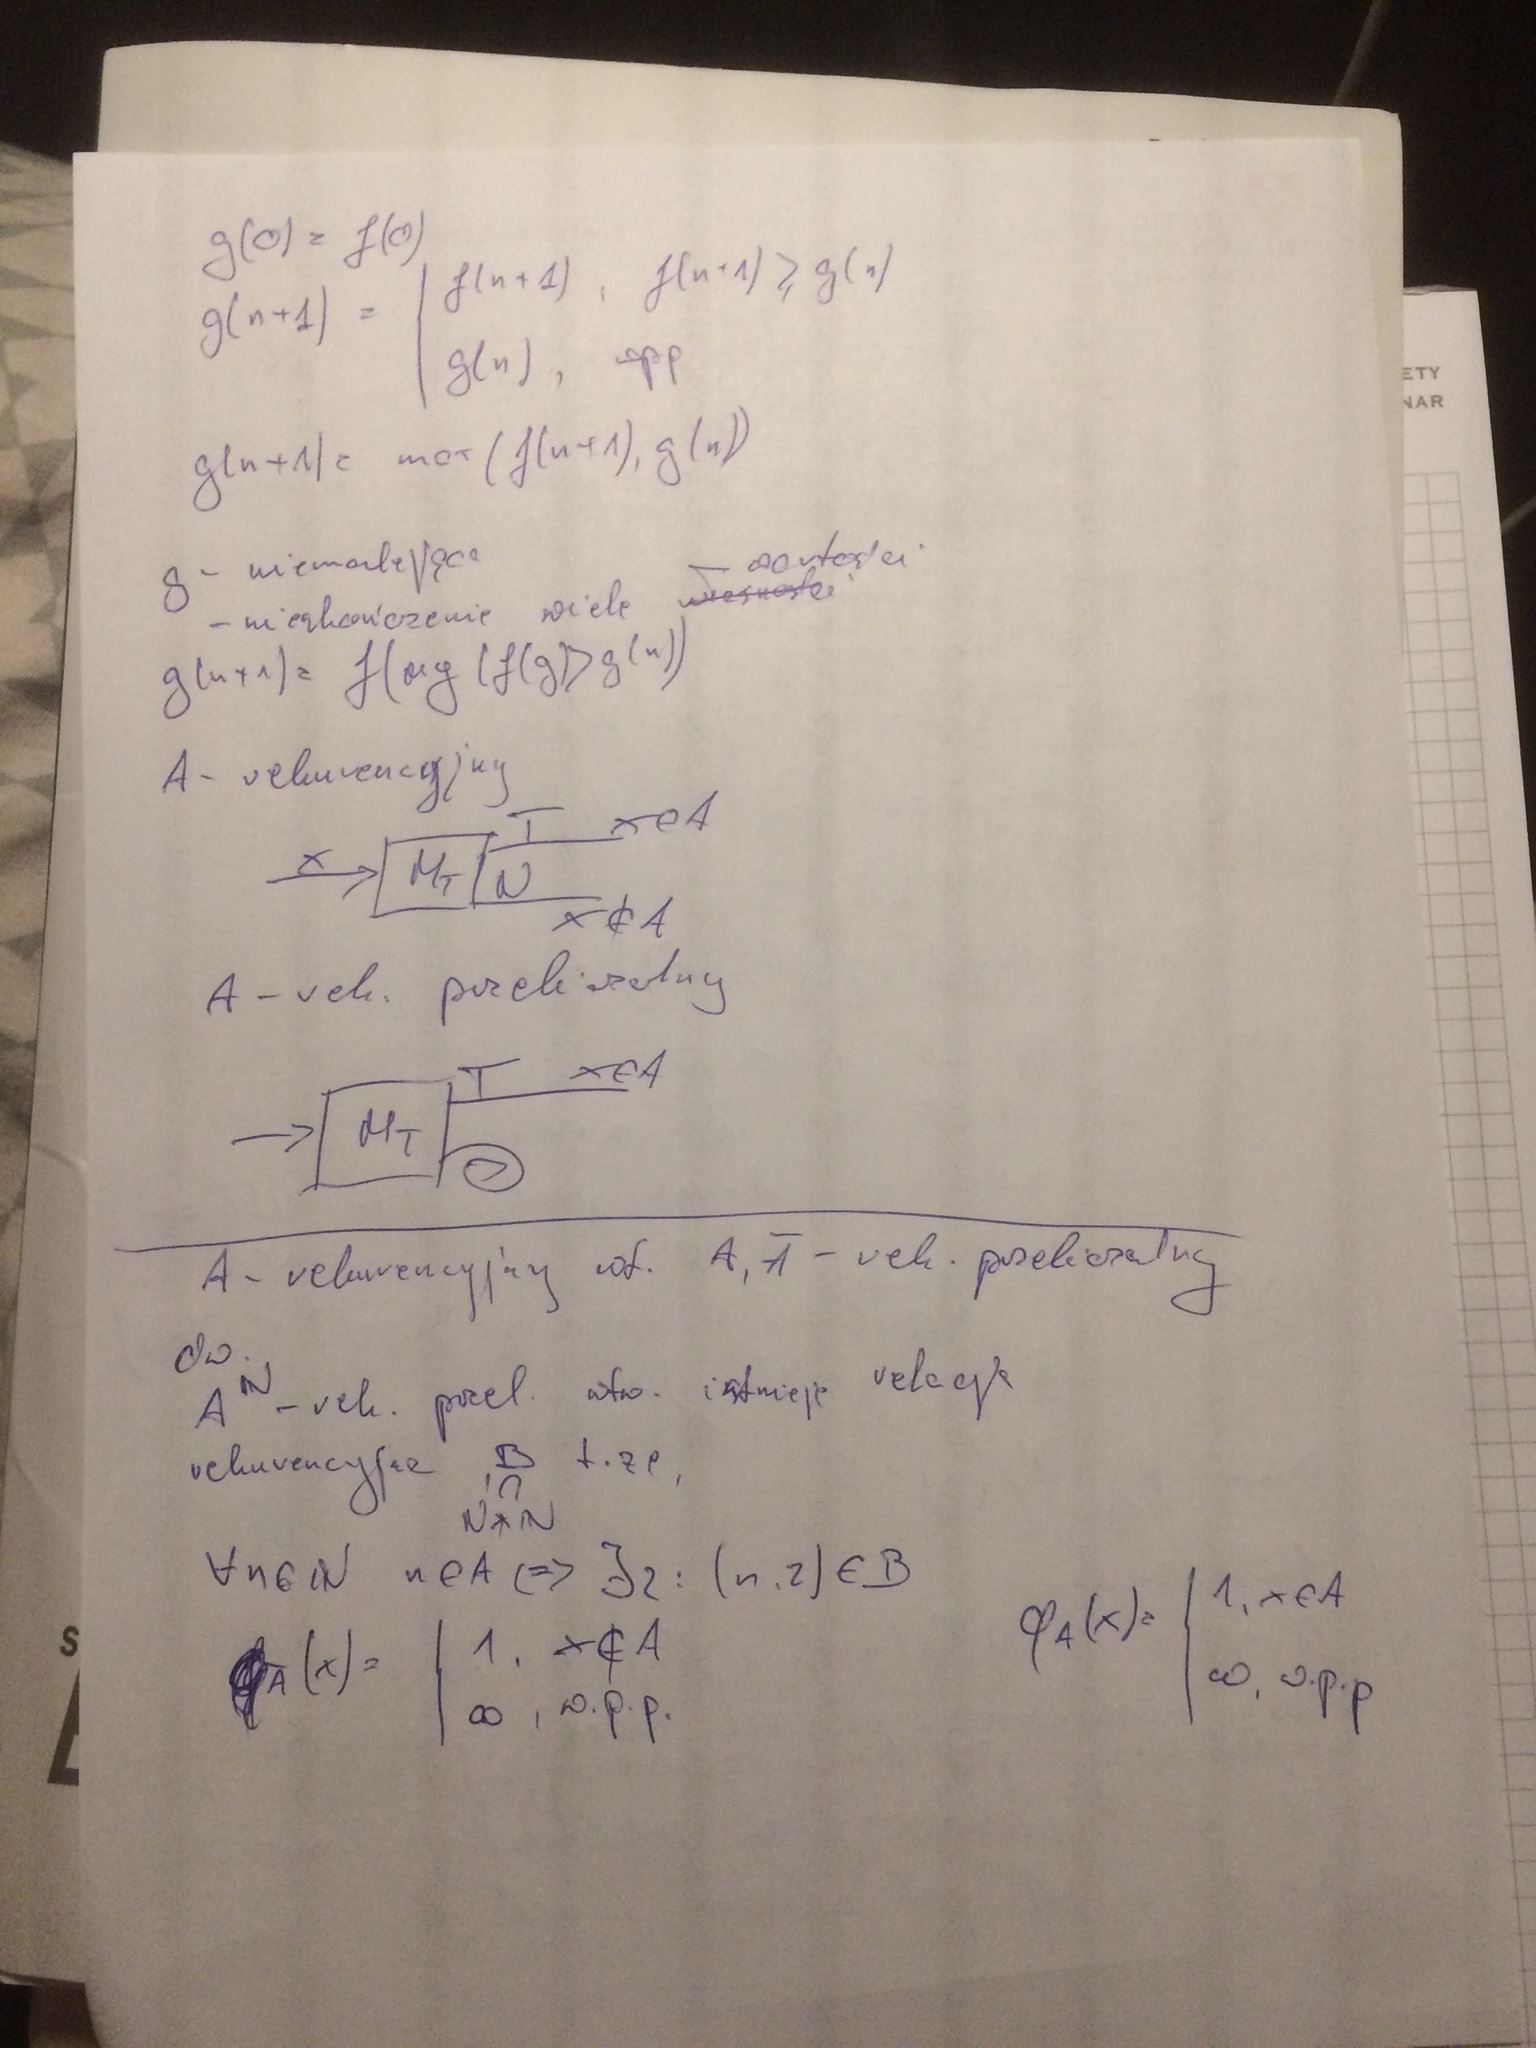 g(0) = f(0)
g(n+1) = { f(n+1), f(n+1) ⩾ g(n)
g(n), wpp
g(n+1) = max(f(n+1), g(n))
g - niemalejąca
- wartości
- nieskończenie wiele
g(n+1) = f(arg(f(g) > g(n))
A - rekurencyjny
x → M_T T x∈A
N
x∉A
A - rek. przeliczalny
→ M_T T x∈A
A - rekurencyjny wt. A, Ā - rek. przeliczalny
dw.
A^ℕ - rek. przel. wtw. istnieje relacja
rekurencyjna B t.że,
∩
ℕ×ℕ
∀n∈ℕ n∈A <=> ∃z : (n,z)∈B
φ_A(x) = { 1, x∈A
∞, w.p.p
_Ā(x) = { 1, x∉A
∞, w.p.p.
ETY
NAR
S